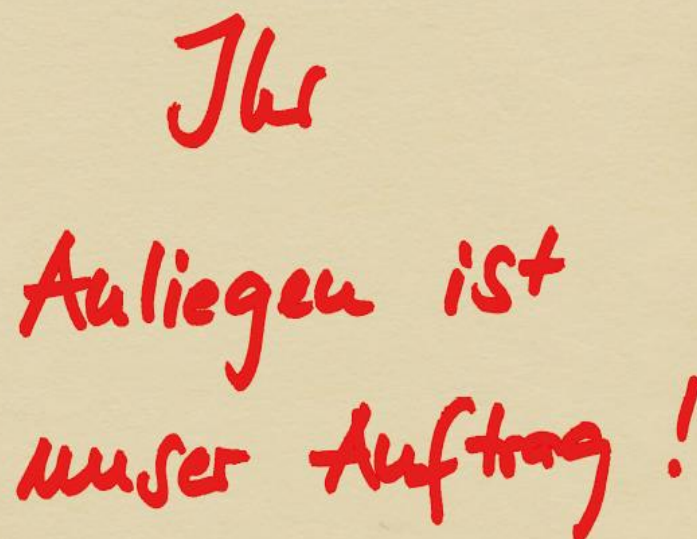 Ihr
Anliegen ist
unser Auftrag !